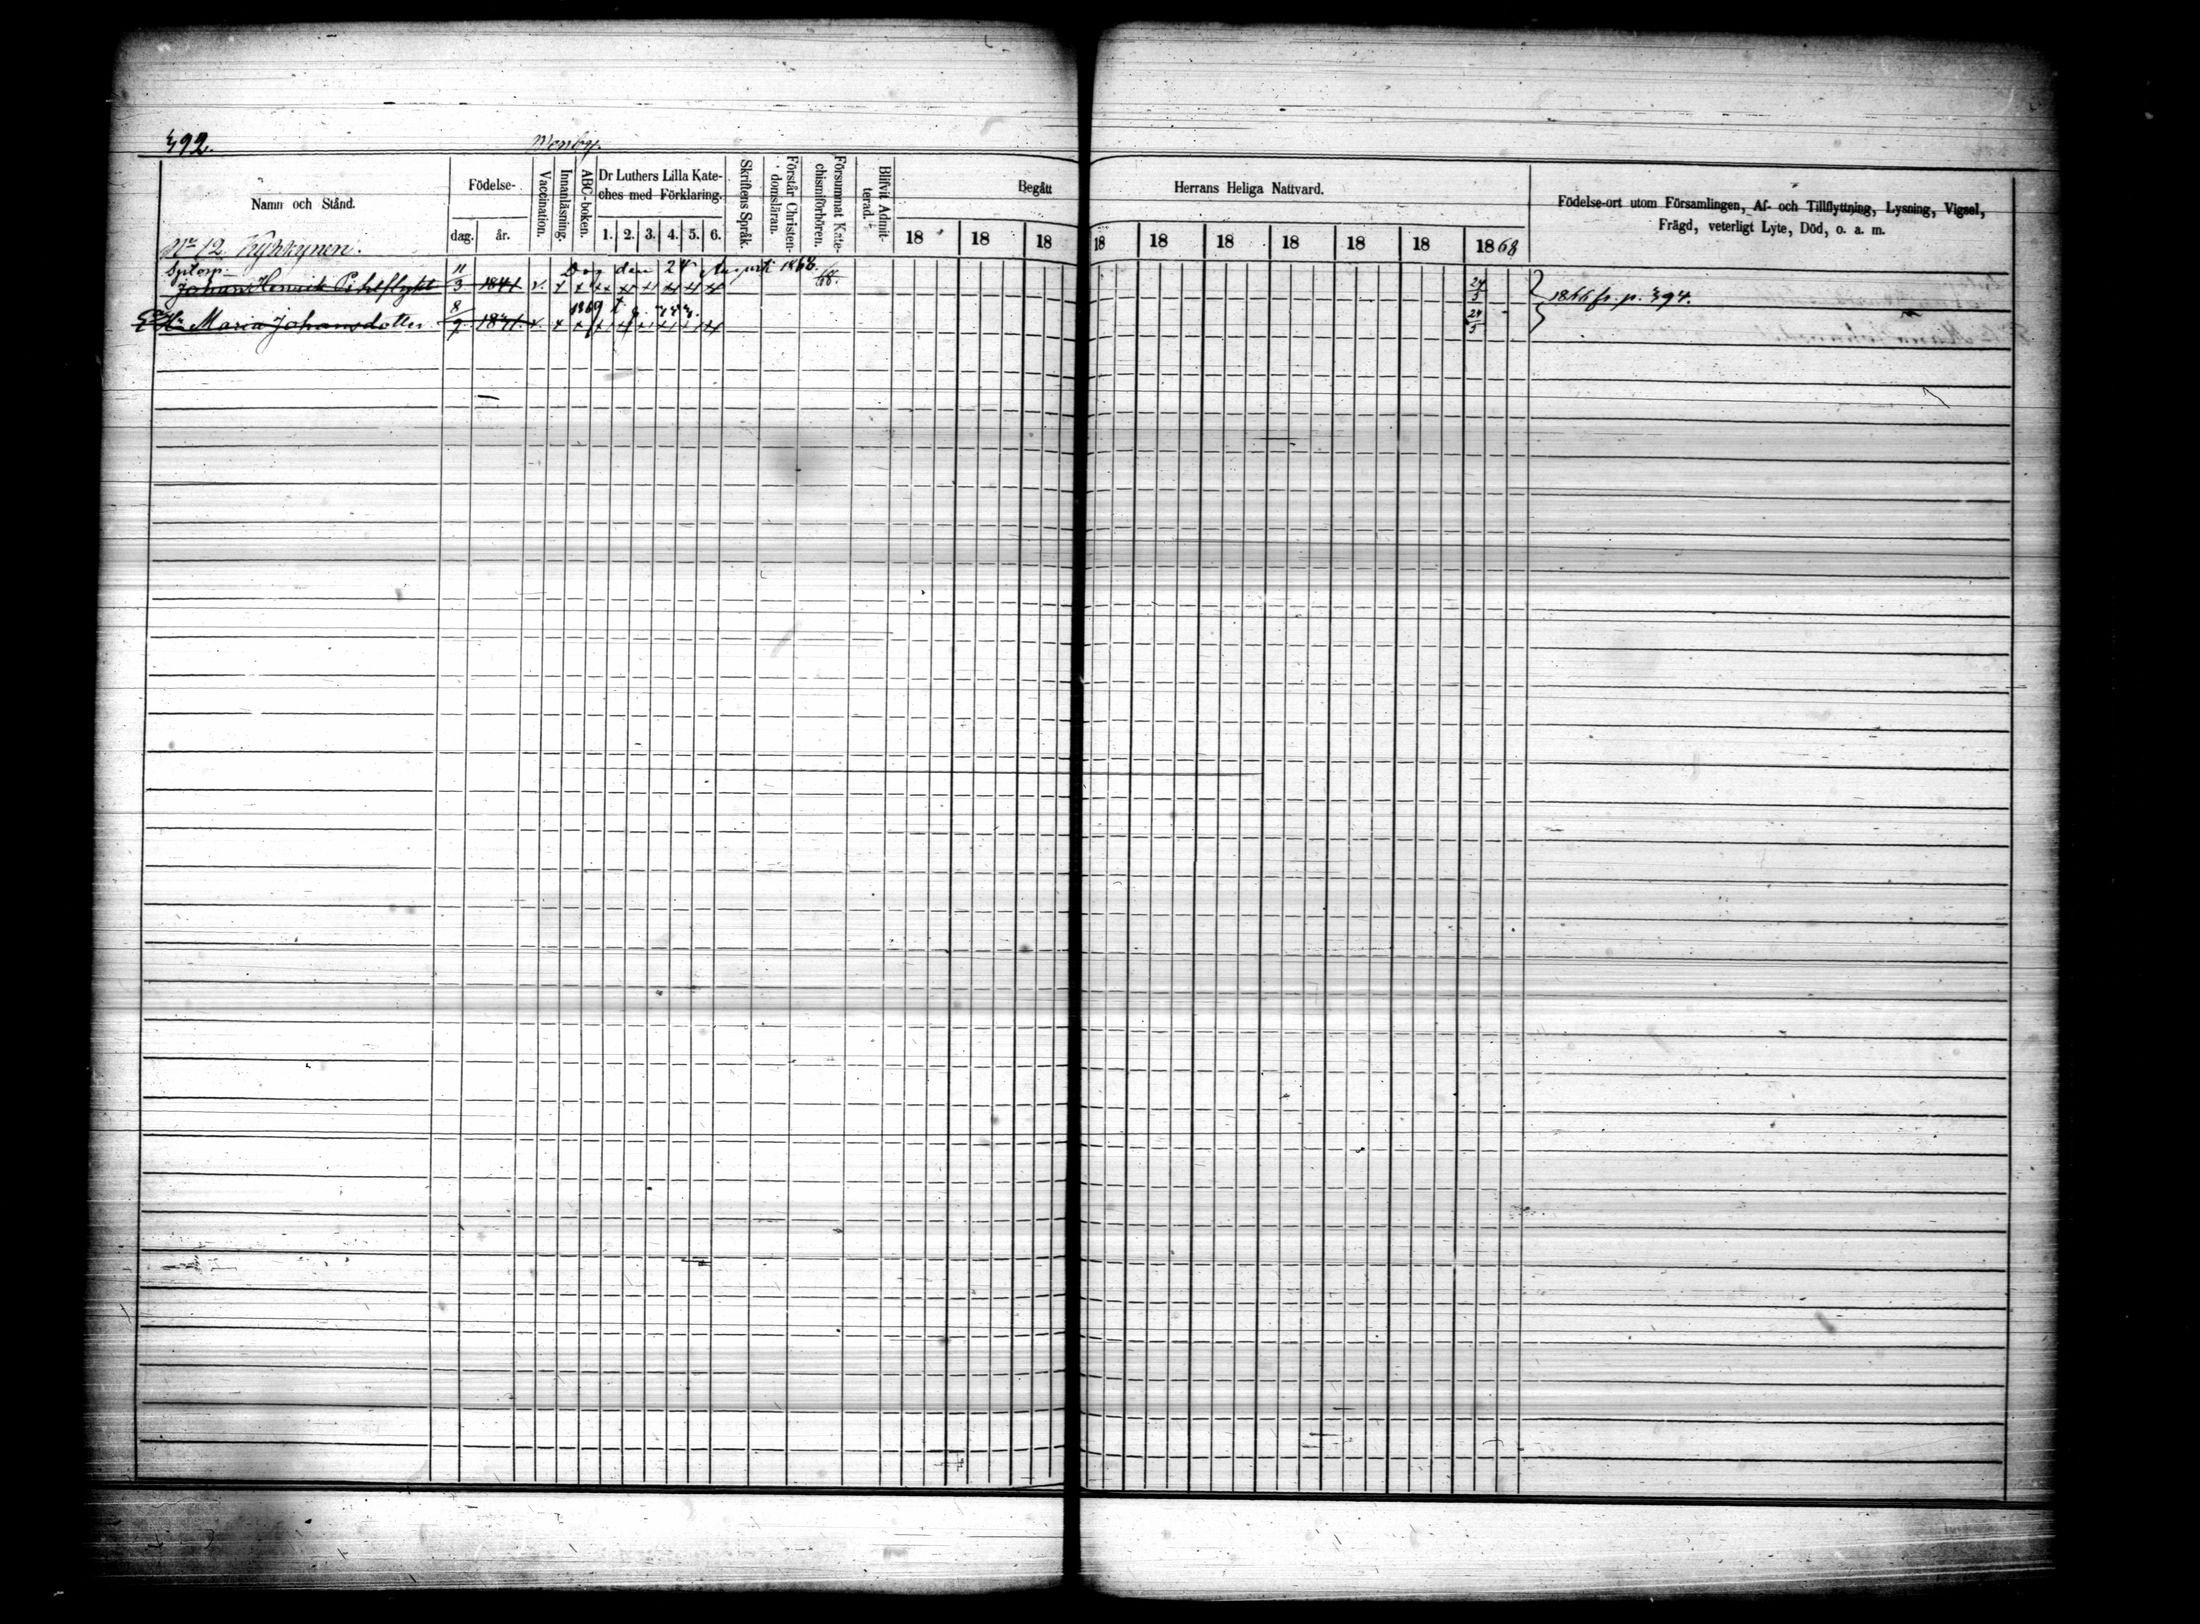 392.
Namn och Stånd.
Födelse-
dag.
år.
Vaccination.
Innanläsning.
ABC-boken.
Dr Luthers Lilla Kate-
ches med Förklaring.
1. 2. 3. 4. 5. 6.
Skriftens Språk.
Förstår Christen-
domsläran.
Försummat Kate-
chismiförhören.
Blifvit Admit-
terad.
Begått
Herrans Heliga Nattvard.
18 18 18 18 18 18 18 18 18 1868
Födelse-ort utom Församlingen, Af- och Tillflyttning, Lysning, Vigsel,
Frägd, veterligt Lyte, Död, o. a. m.
No 12.
Dog den 24 Augusti 1868.
Johan Henrik 11/3 1841 v. 24/5
1866 fr. p. 394.
Maria Johansdotter 8/9 1841. v. 1869 24/5